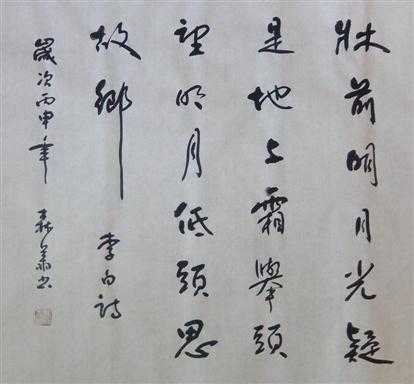 牀前明月光疑
是地上霜舉頭
望明月低頭思
故鄉 李白詩
歲次丙申年